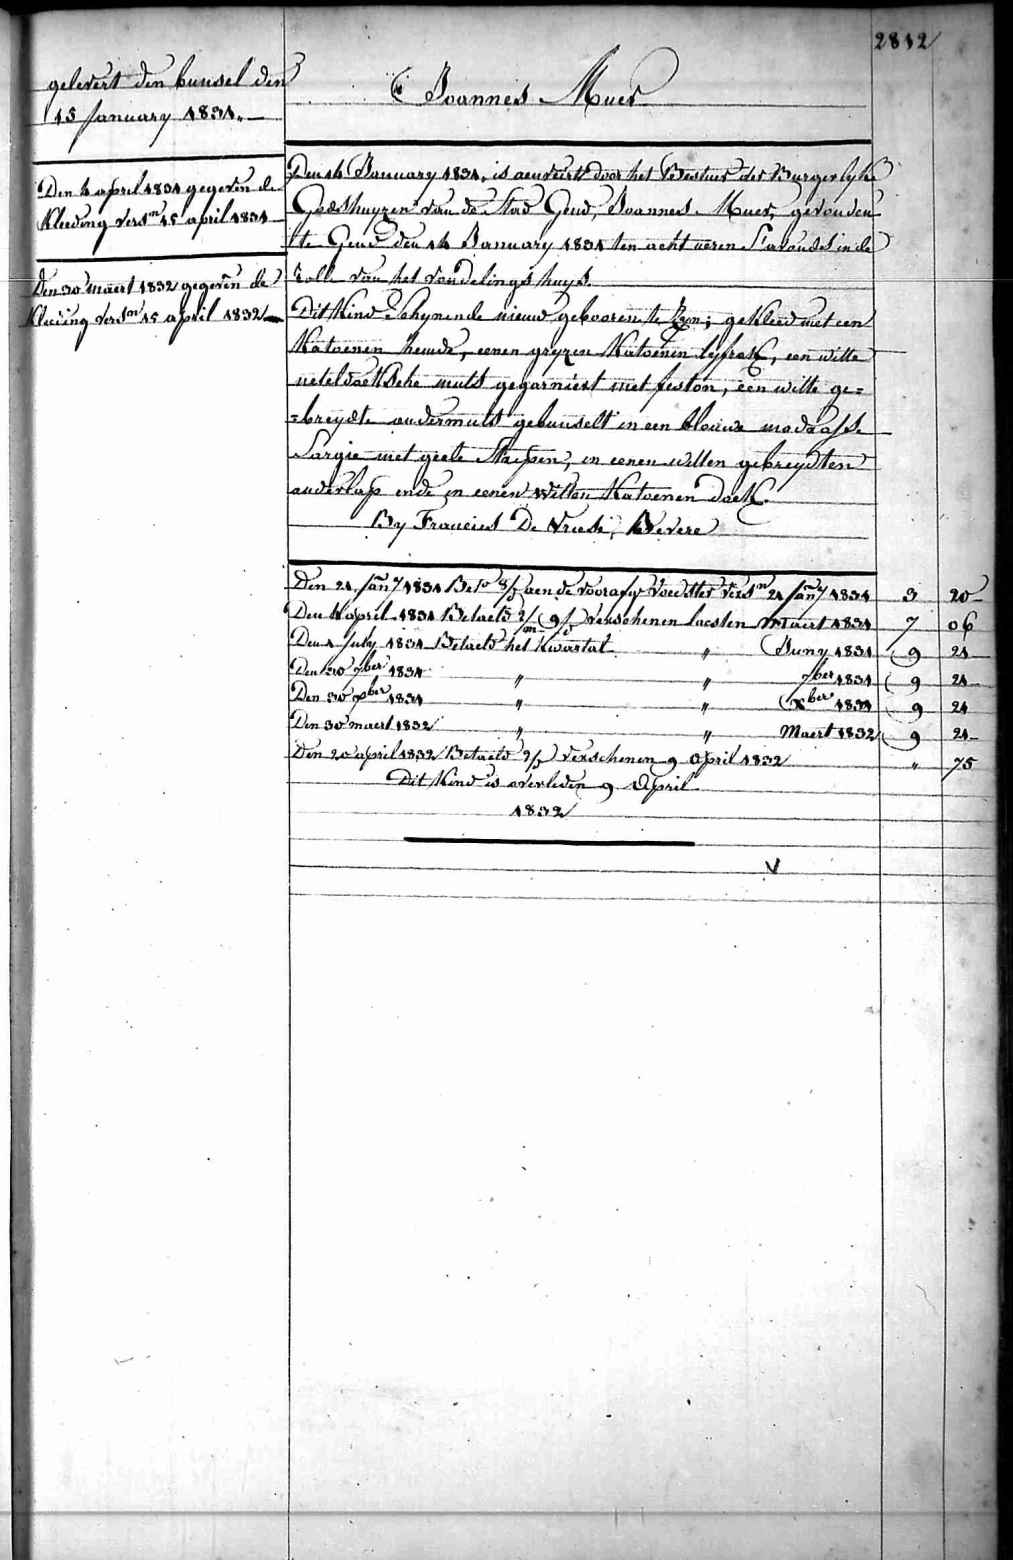 2812
gelevert den bunsel den
15 January 1831.
Den 4 april 1831 gegeven de
kleeding vers.n 15 april 1831
Den 30 maert 1832 gegeven de
kleeding vers.n 15 april 1832
Joannes Muer
Den 14 January 1831, is aenveirt door het Bestuur der Burgerlyke
Godshuyzen van de Stad Gend, Joannes Muer, gevonden
te Gend den 14 January 1831 ten acht ueren s'avonds in de
rolle van het vondelings huys.
Dit Kind schynende nieuw gebooren te zyn; gekleed met een
Katoenen hemde, eenen gryzen Katoenen lyfrok, een witte
neteldoeksche muts gegarniert met feston, een witte ge=
=breydte ondermuts gebunselt in een blauwe
Sargie met geele Streepen, en eenen witten gebreydten
onderlap ende in eenen witten Katoenen doek.
By Francies De Vriese, Bevere
Den 21 Jan.y 1831 Bet.o aen de voorafg.e voedster vers.n 21 Jan.y 1831 3 20
Den 4 april 1831 Betaeld verschenen laesten Maert 1831 7 06
Den 1 July 1831 Betaeld het kwartal " Juny 1831 9 21
Den 30 7ber 1831 " " 7ber 1831 9 21
Den 30 xber 1831 " " xber 1831 9 21
Den 30 maert 1832 " " Maert 1832 9 21
Den 20 april 1832 Betaeld verschenen 9 april 1832 " 75
Dit Kind is overleden 9 April
1832
V